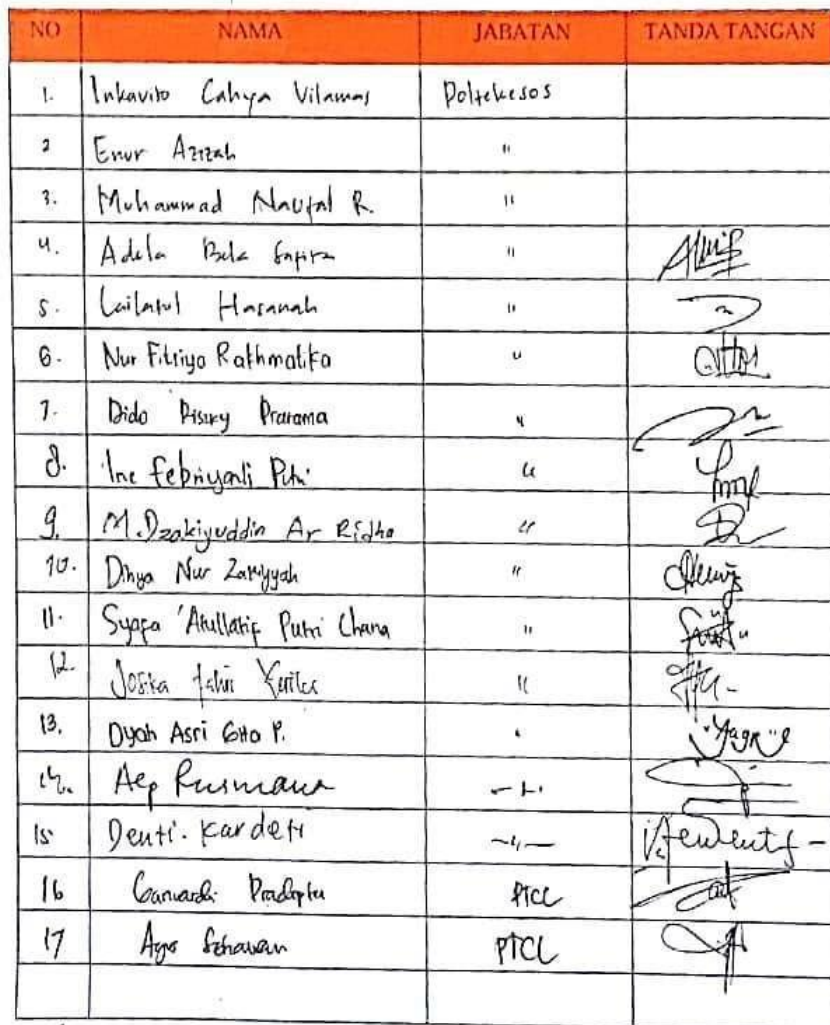 NO NAMA JABATAN TANDA TANGAN
1. Inkavito Cahya Vilamas Poltekesos
2 Enur Azizah "
3. Muhammad Naufal R. "
4. Adela Bela Safira "
5. Lailatul Hasanah "
6. Nur Fitriya Rakhmatika "
7. Dido Risky Pratama "
8. Ine Febriyanti Putri "
9. M. Dzakiyuddin Ar Ridho "
10. Dhya Nur Zakiyyah "
11. Syafa 'Atullatif Putri Chana "
12. Joska "
13. Dyah Asri Gita P. "
14. Aep Rusmana -"-
15 Denti. Kardeti -"-
16 PTCL
17 PTCL